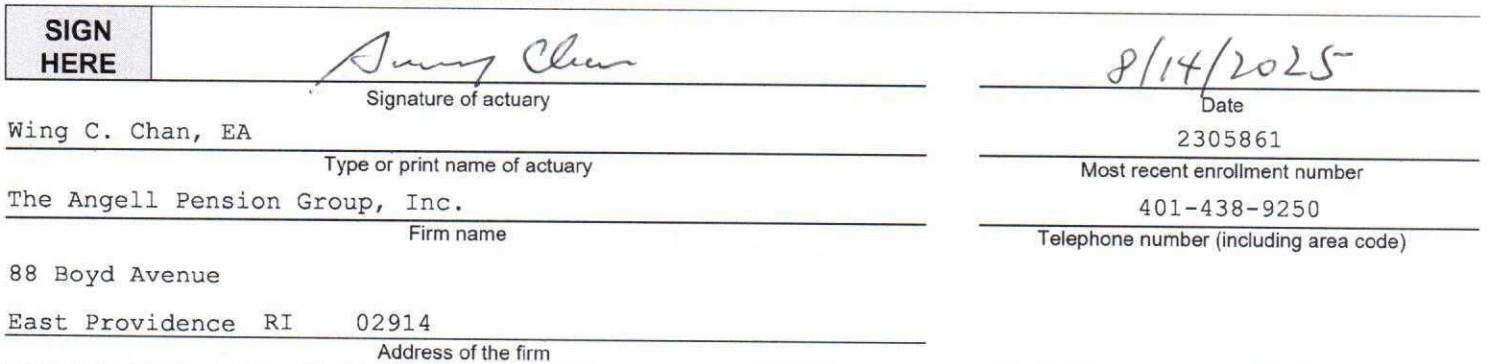 SIGN
HERE
Chan
8/14/2025
Signature of actuary
Date
Wing C. Chan, EA
2305861
Type or print name of actuary
Most recent enrollment number
The Angell Pension Group, Inc.
401-438-9250
Firm name
Telephone number (including area code)
88 Boyd Avenue
East Providence RI 02914
Address of the firm